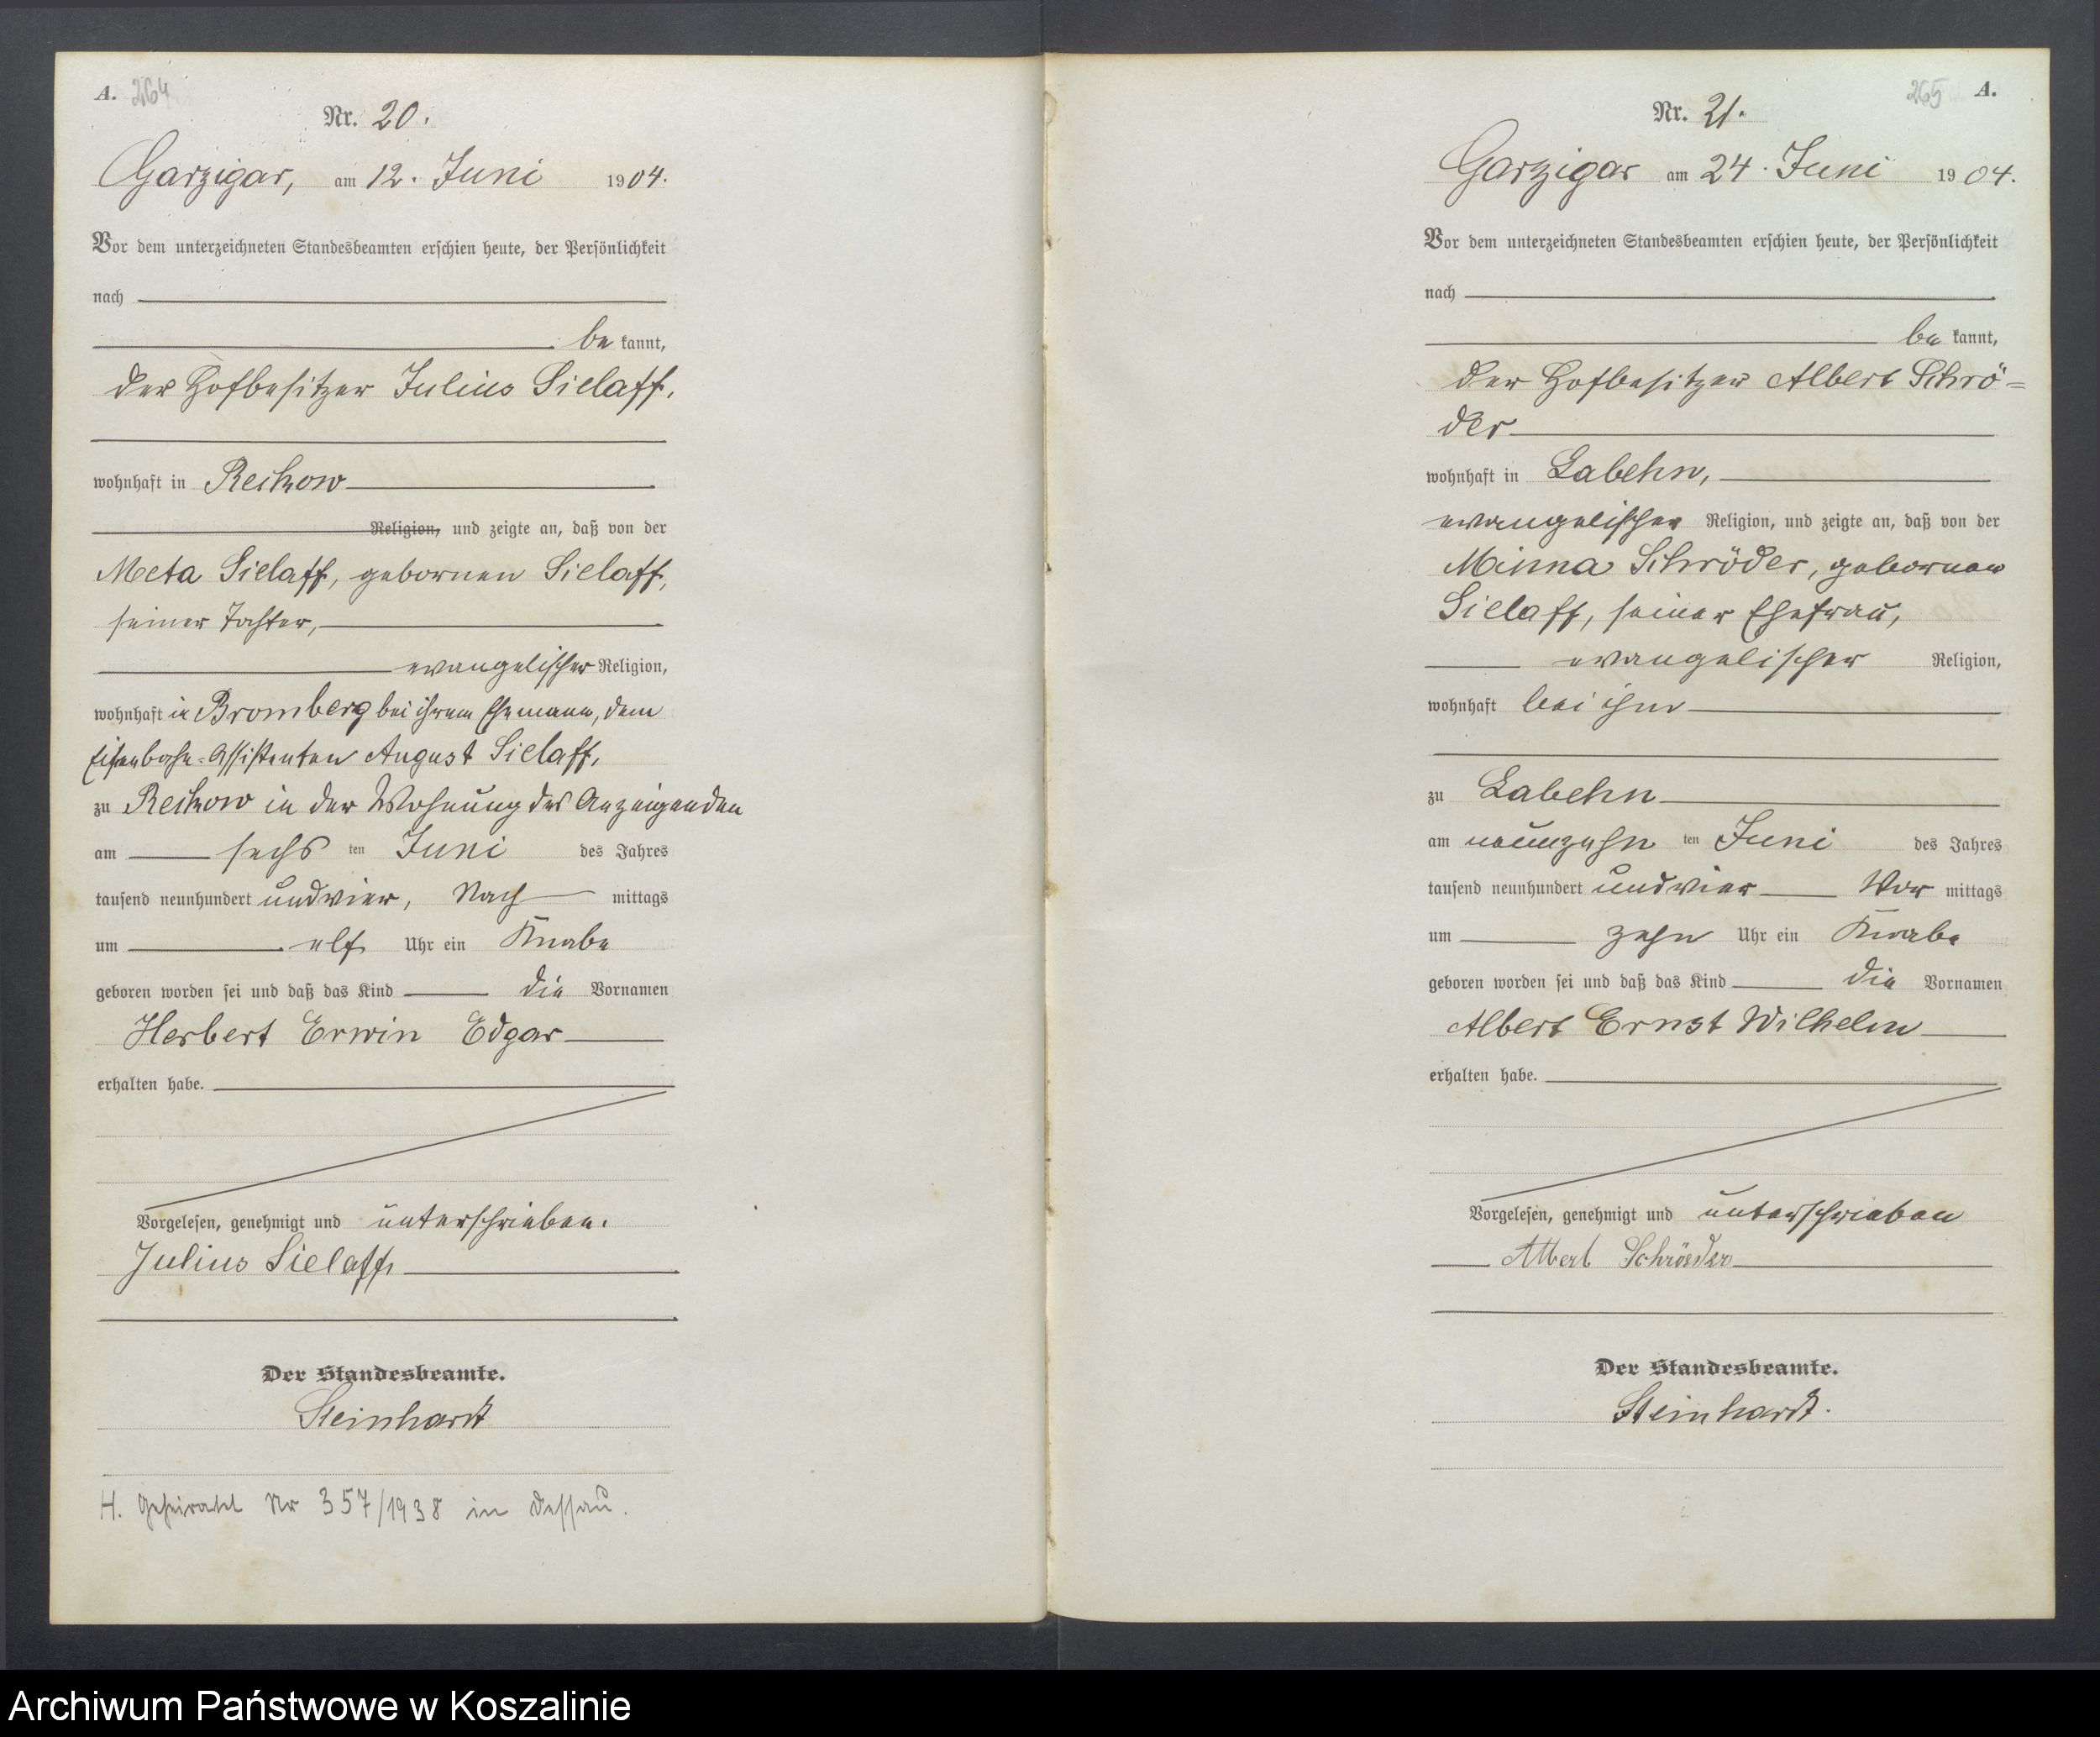 A. 264
Nr. 20.
Garzigar, am 12. Juni 1904.
Vor dem unterzeichneten Standesbeamten erschien heute, der Persönlichkeit
nach
be kannt,
der Hofbesitzer Julius Sielaff,
wohnhaft in Reckow
Religion, und zeigte an, daß von der
Meta Sielaff, gebornen Sielaff,
seiner Tochter,
evangelischer Religion,
wohnhaft in Bromberg bei ihrem Ehemann, dem
Eisenbahn-Assistenten August Sielaff,
zu Reckow in der Wohnung des Anzeigenden
am sechs ten Juni des Jahres
tausend neunhundert undvier, Nach mittags
um elf Uhr ein Knabe
geboren worden sei und daß das Kind die Vornamen
Herbert Erwin Edgar
erhalten habe.
Vorgelesen, genehmigt und unterschrieben.
Julius Sielaff
Der Standesbeamte.
Steinhardt
H. Geheiratet Nr 357/1938 in Dessau.
265 A.
Nr. 21.
Garzigar am 24. Juni 1904.
Vor dem unterzeichneten Standesbeamten erschien heute, der Persönlichkeit
nach
be kannt,
der Hofbesitzer Albert Schrö=
der
wohnhaft in Labehn,
evangelischer Religion, und zeigte an, daß von der
Minna Schröder, gebornen
Sielaff, seiner Ehefrau,
evangelischer Religion,
wohnhaft bei ihm
zu Labehn
am neunzehn ten Juni des Jahres
tausend neunhundert undvier Vor mittags
um zehn Uhr ein Knabe
geboren worden sei und daß das Kind die Vornamen
Albert Ernst Wilhelm
erhalten habe.
Vorgelesen, genehmigt und unterschrieben
Albert Schröder
Der Standesbeamte.
Steinhardt.
Archiwum Państwowe w Koszalinie